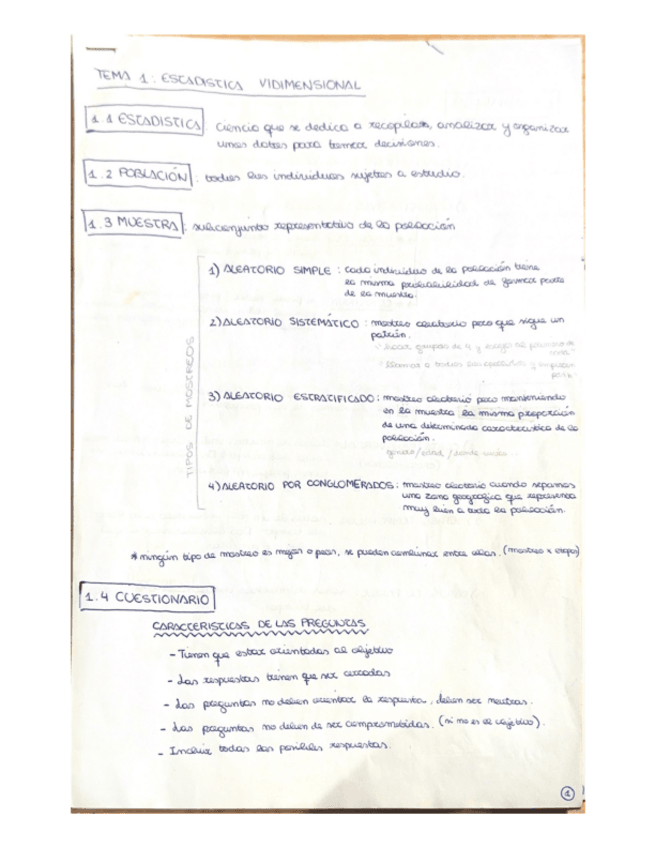 TEMA 1: ESTADISTICA VIDIMENSIONAL
1.1 ESTADISTICA: Ciencia que se dedica a recopilar, analizar y organizar
unos datos para tomar decisiones.
1.2 POBLACIÓN: todos los individuos sujetos a estudio.
1.3 MUESTRA: subconjunto representativo de la población
TIPOS DE MOSTREOS
1) ALEATORIO SIMPLE: cada individuo de la población tiene
la misma probabilidad de formar parte
de la muestra.
2) ALEATORIO SISTEMÁTICO: mostreo aleatorio pero que sigue un
patrón.
hacer grupos de 4 y
3) ALEATORIO ESTRATIFICADO: mostreo aleatorio pero manteniendo
en la muestra la misma proporción
de una determinada caracteristica de la
población.
genero/edad/
4) ALEATORIO POR CONGLOMERADOS: mostreo aleatorio cuando separamos
una zona geografica que representa
muy bien a toda la población.
* ningún tipo de mostreo es mejor o peor, se pueden combinar entre ellos. (mostreo x etapas)
1.4 CUESTIONARIO
CARACTERISTICAS DE LAS PREGUNTAS
- Tienen que estar orientadas al objetivo
- Las respuestas tienen que ser cerradas
- Las preguntas no deben orientar la respuesta, deben ser neutras.
- Las preguntas no deben de ser comprometidas. (si no es el objetivo).
- Incluir todas las posibles respuestas.
1